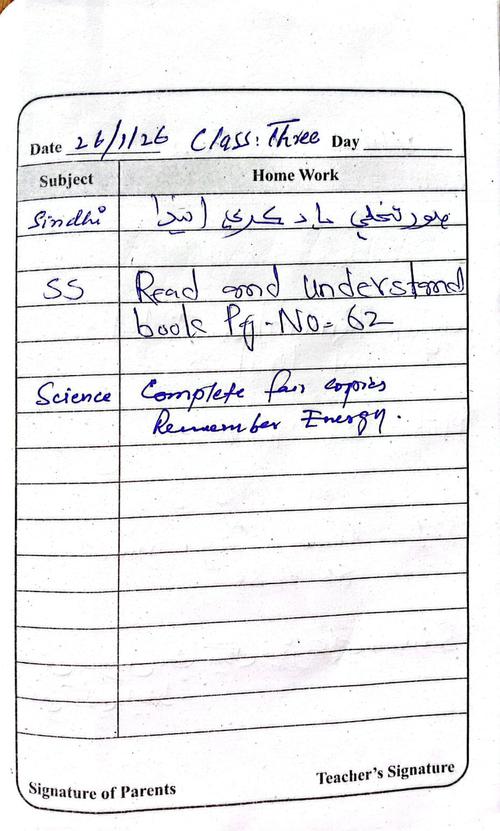 Date 26/1/26 Class: Three Day
Subject Home Work
Sindhi صورتخطي ياد ڪري اينديا
SS Read and understand
book Pg-No= 62
Science Complete fair copies
Remember Energy.
Signature of Parents Teacher's Signature